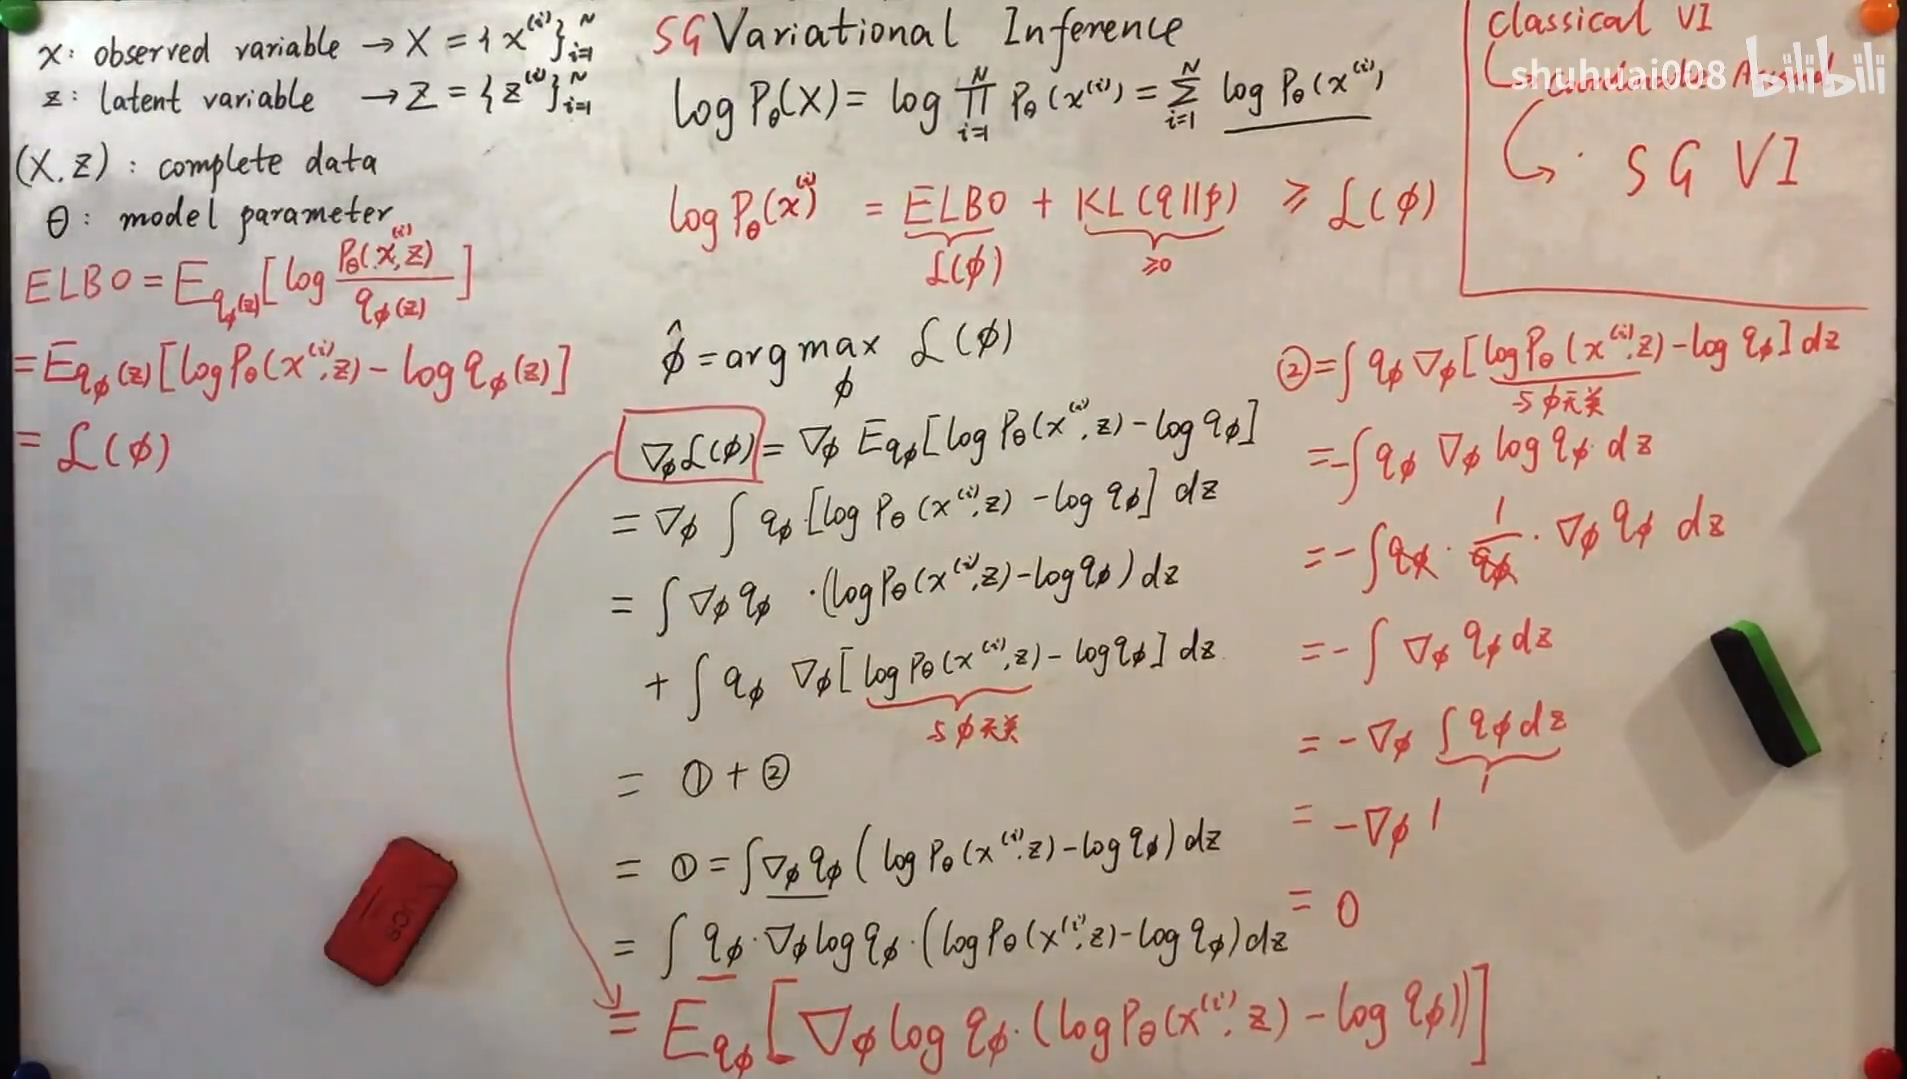 x: observed variable → X = {x^(i)}_{i=1}^N
z: latent variable → Z = {z^(i)}_{i=1}^N
(X, Z): complete data
θ: model parameter
ELBO = E_{qφ(z)}[log Pθ(x^(i), z) / qφ(z)]
= E_{qφ(z)}[log Pθ(x^(i), z) - log qφ(z)]
= L(φ)
SGVariational Inference
log Pθ(X) = log ∏_{i=1}^N Pθ(x^(i)) = ∑_{i=1}^N log Pθ(x^(i))
log Pθ(x^(i)) = ELBO + KL(q||p) ≥ L(φ)
L(φ) ≥0
φ̂ = arg max_φ L(φ)
∇φL(φ) = ∇φ E_{qφ}[log Pθ(x^(i), z) - log qφ]
= ∇φ ∫ qφ [log Pθ(x^(i), z) - log qφ] dz
= ∫ ∇φ qφ · (log Pθ(x^(i), z) - log qφ) dz
+ ∫ qφ ∇φ [log Pθ(x^(i), z) - log qφ] dz
与φ无关
= ① + ②
= ① = ∫ ∇φ qφ (log Pθ(x^(i), z) - log qφ) dz
= ∫ qφ · ∇φ log qφ · (log Pθ(x^(i), z) - log qφ) dz
= E_{qφ}[∇φ log qφ · (log Pθ(x^(i), z) - log qφ)]
Classical VI
shuhuai008 bilibili
SG VI
② = ∫ qφ ∇φ [log Pθ(x^(i), z) - log qφ] dz
与φ无关
= -∫ qφ ∇φ log qφ · dz
= -∫ qφ · 1/qφ · ∇φ qφ dz
= -∫ ∇φ qφ dz
= -∇φ ∫ qφ dz
1
= -∇φ 1
= 0